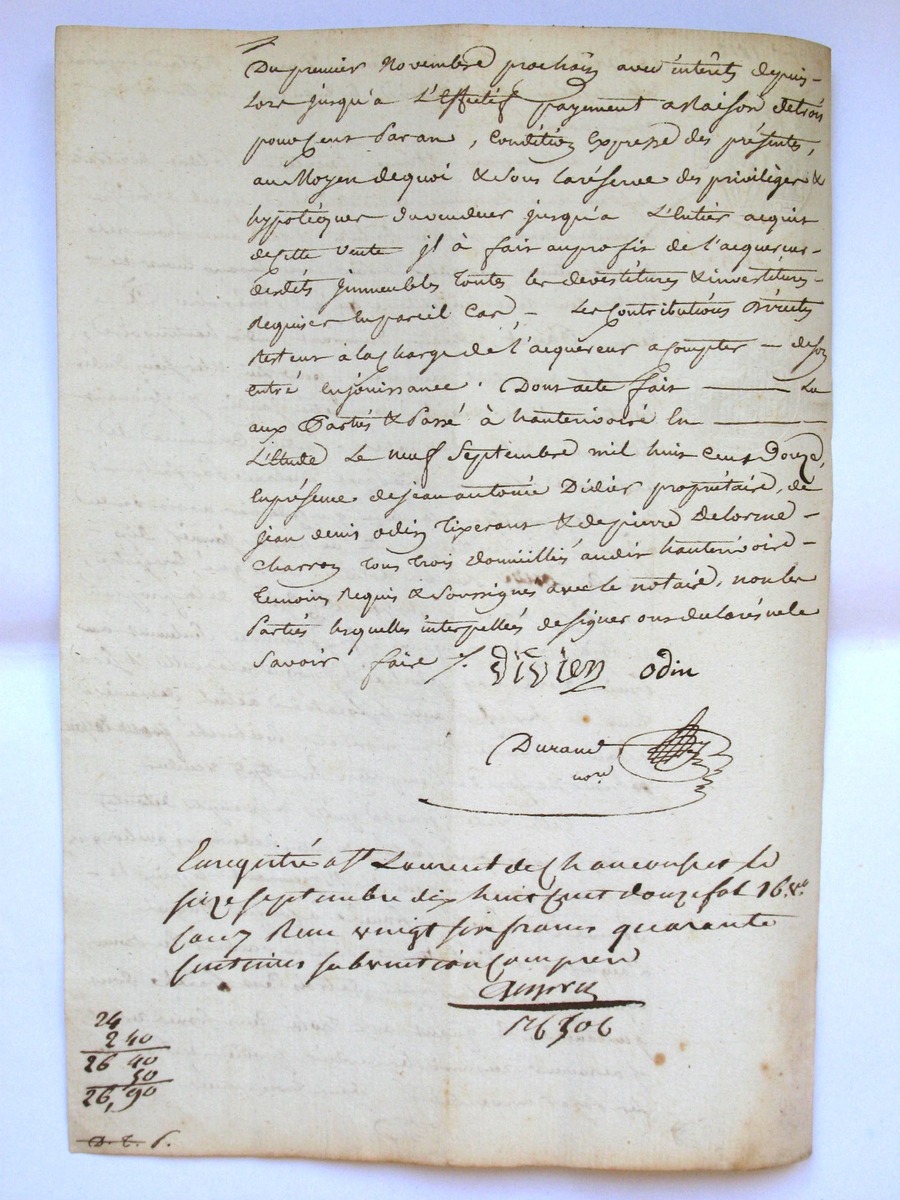 Du premier Novembre prochain avec intérêts depuis
lors jusqu'a L'Effectif payement a Raison de trois
pour Cent Par an, Condition Expresse des présentes,
au Moyen de quoi & sous la réserve des privilèges &
hypotèques du vendeur jusqu'a L'Entier acquit
de cette Vente il à fait au profit de l'acquereur
desdits immeubles toutes les devestitures & investitures
Requises En pareil Cas - Les Contributions Directes
Restent à la Charge de l'acquereur a Compter - de son
entré en jouissance. Dont acte fait — Lu
aux Parties & Passé à hauterivoire En —
L'Etude Le neuf Septembre mil huit Cent Douze,
En présence de jean antoine Didier propriétaire, de
jean denis odin Tixerant & de pierre Delorme -
Charron tous trois domiciliés audit hauterivoire -
temoins Requis & Soussignés avec le notaire, non les
Parties lesquelles interpellées de signer ont déclaré ne le
Savoir faire /.
Odin
Durand
nore
Enregistré a St Laurent de Chamousset le
seize septembre dix huit Cent douze fol 16 vo
Reçu vingt six francs quarante
centimes subvention Comprise
24
2 40
26 40
50
26,90
D. T. 6.